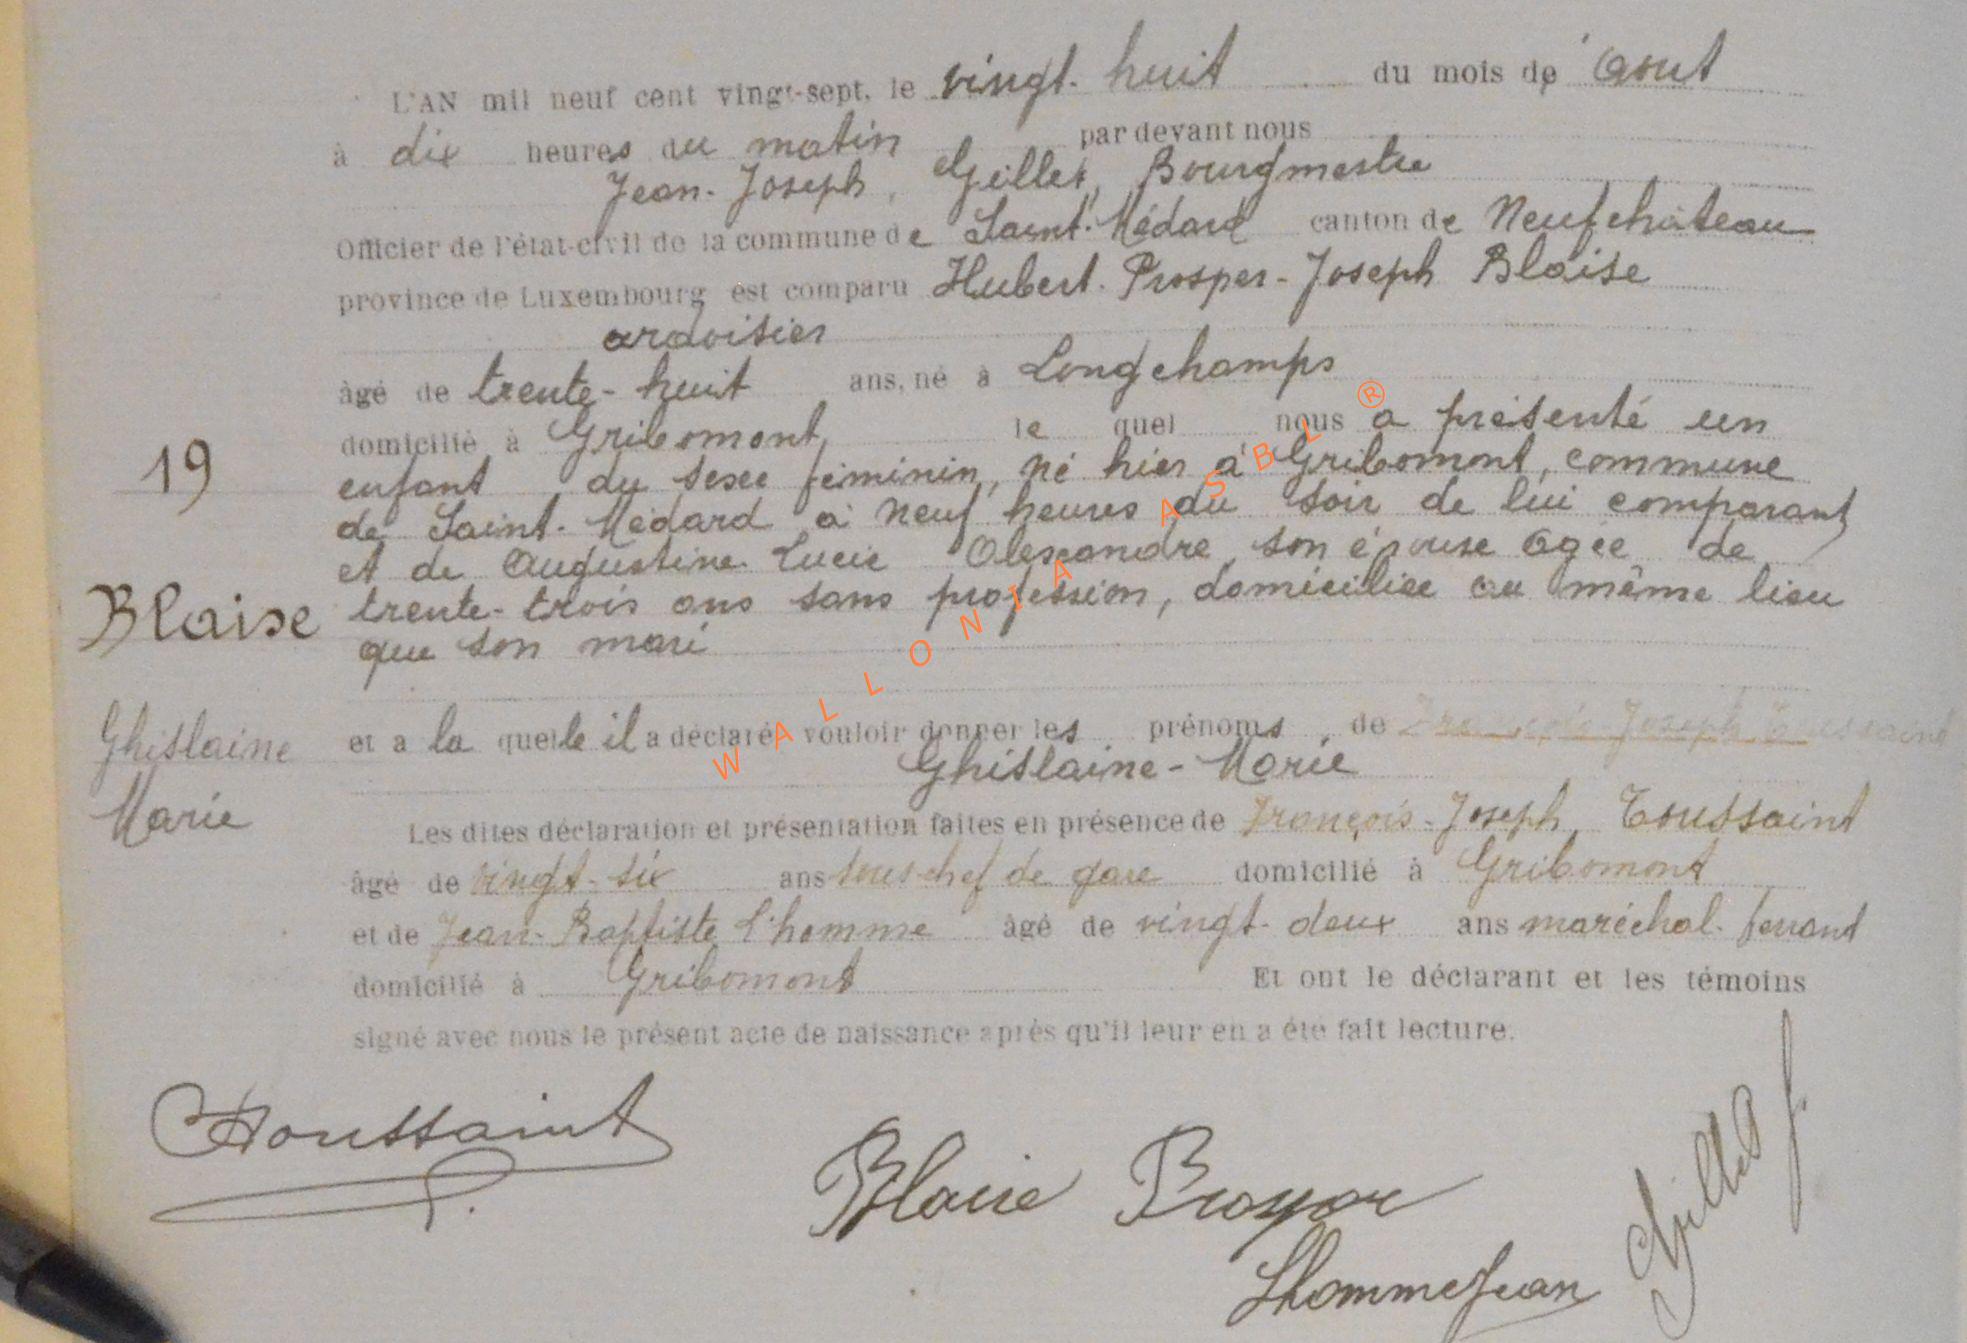 L'AN mil neuf cent vingt-sept, le vingt-huit du mois de Août
à dix heures du matin par devant nous
Jean-Joseph, Gillet, Bourgmestre
Officier de l'état-civil de la commune de Saint-Médard canton de Neufchâteau
province de Luxembourg est comparu Hubert-Prosper-Joseph Blaise
ardoisier
âgé de trente-huit ans, né à Longchamps
domicilié à Gribomont, le quel nous a présenté un
enfant du sexe féminin, né hier à Gribomont, commune
19
de Saint-Médard à neuf heures du soir de lui comparant
et de Augustine Lucie Alexandre son épouse âgée de
trente-trois ans sans profession, domiciliée au même lieu
Blaise
que son mari
et a la quelle il a déclaré vouloir donner les prénoms de François-Joseph Toussaint
Ghislaine-Marie
Ghislaine
Marie
Les dites déclaration et présentation faites en présence de François-Joseph, Toussaint
âgé de vingt-six ans sous-chef de gare domicilié à Gribomont
et de Jean-Baptiste L'homme âgé de vingt-deux ans maréchal-ferrant
domicilié à Gribomont Et ont le déclarant et les témoins
signé avec nous le présent acte de naissance après qu'il leur en a été fait lecture.
Toussaint
Blaise Prosper
Lhomme Jean
Gillet J.
WALLONIA ASBL ®